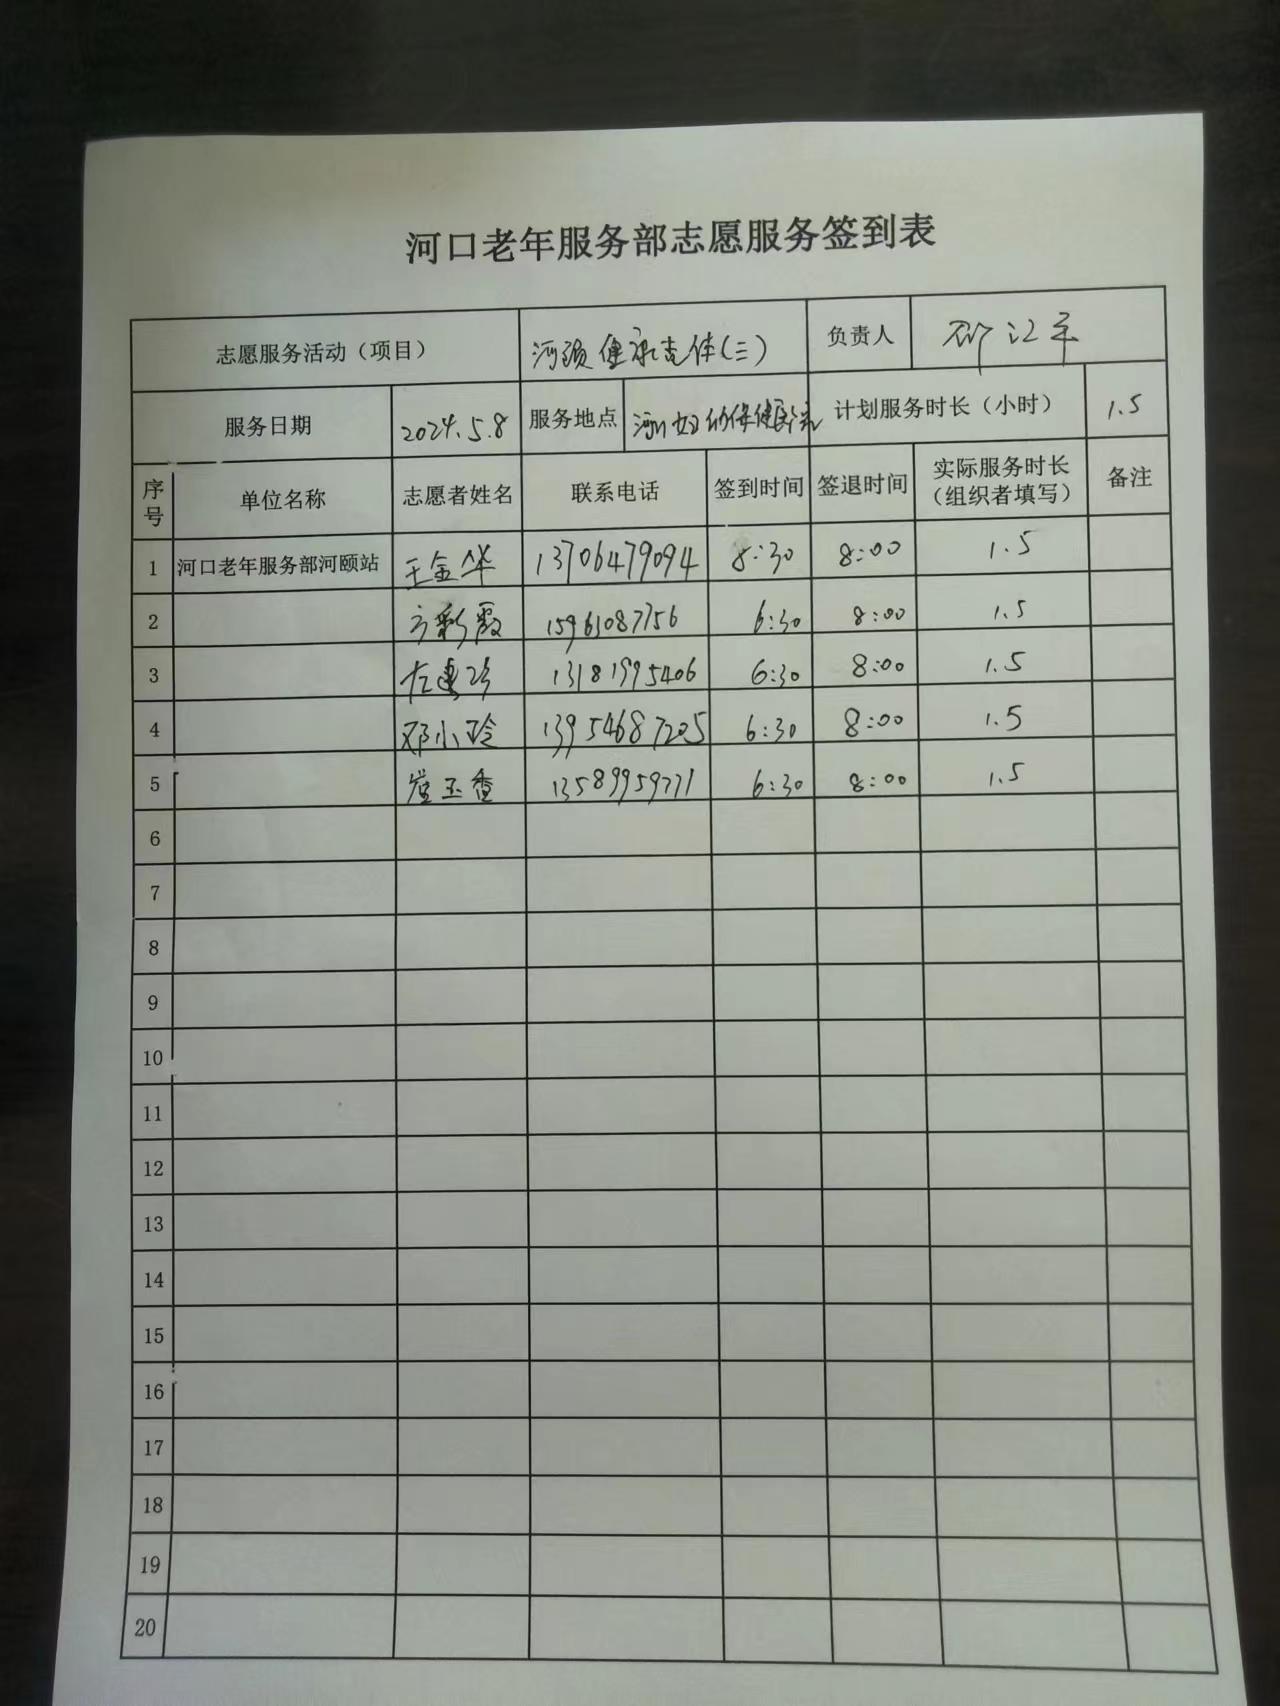 河口老年服务部志愿服务签到表
志愿服务活动（项目） 河颐健康走体(三) 负责人
服务日期 2024.5.8 服务地点 妇幼保健院 计划服务时长（小时） 1.5
序号 单位名称 志愿者姓名 联系电话 签到时间 签退时间 实际服务时长（组织者填写） 备注
1 河口老年服务部河颐站 王金华 13706479094 8:30 8:00 1.5
2 方彩霞 15961087756 6:30 8:00 1.5
3 左建珍 13181995406 6:30 8:00 1.5
4 邓小玲 13954687205 6:30 8:00 1.5
5 崔玉香 13589959771 6:30 8:00 1.5
6
7
8
9
10
11
12
13
14
15
16
17
18
19
20